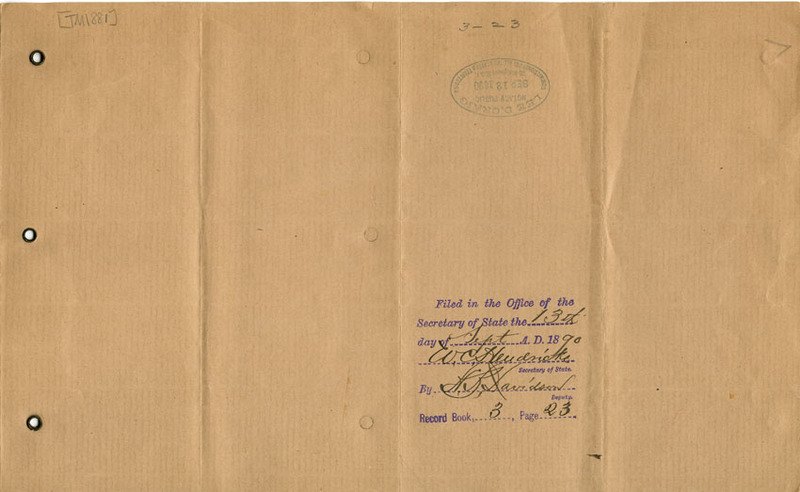 [TM1881]
3-23
LEE D. CRAIG
NOTARY PUBLIC
SEP 13 1890
Filed in the Office of the
Secretary of State the 13th
day of Sept A. D. 1890
W. C. Hendricks
Secretary of State.
By H. S. Davidson
Deputy.
Record Book, 3, Page 23